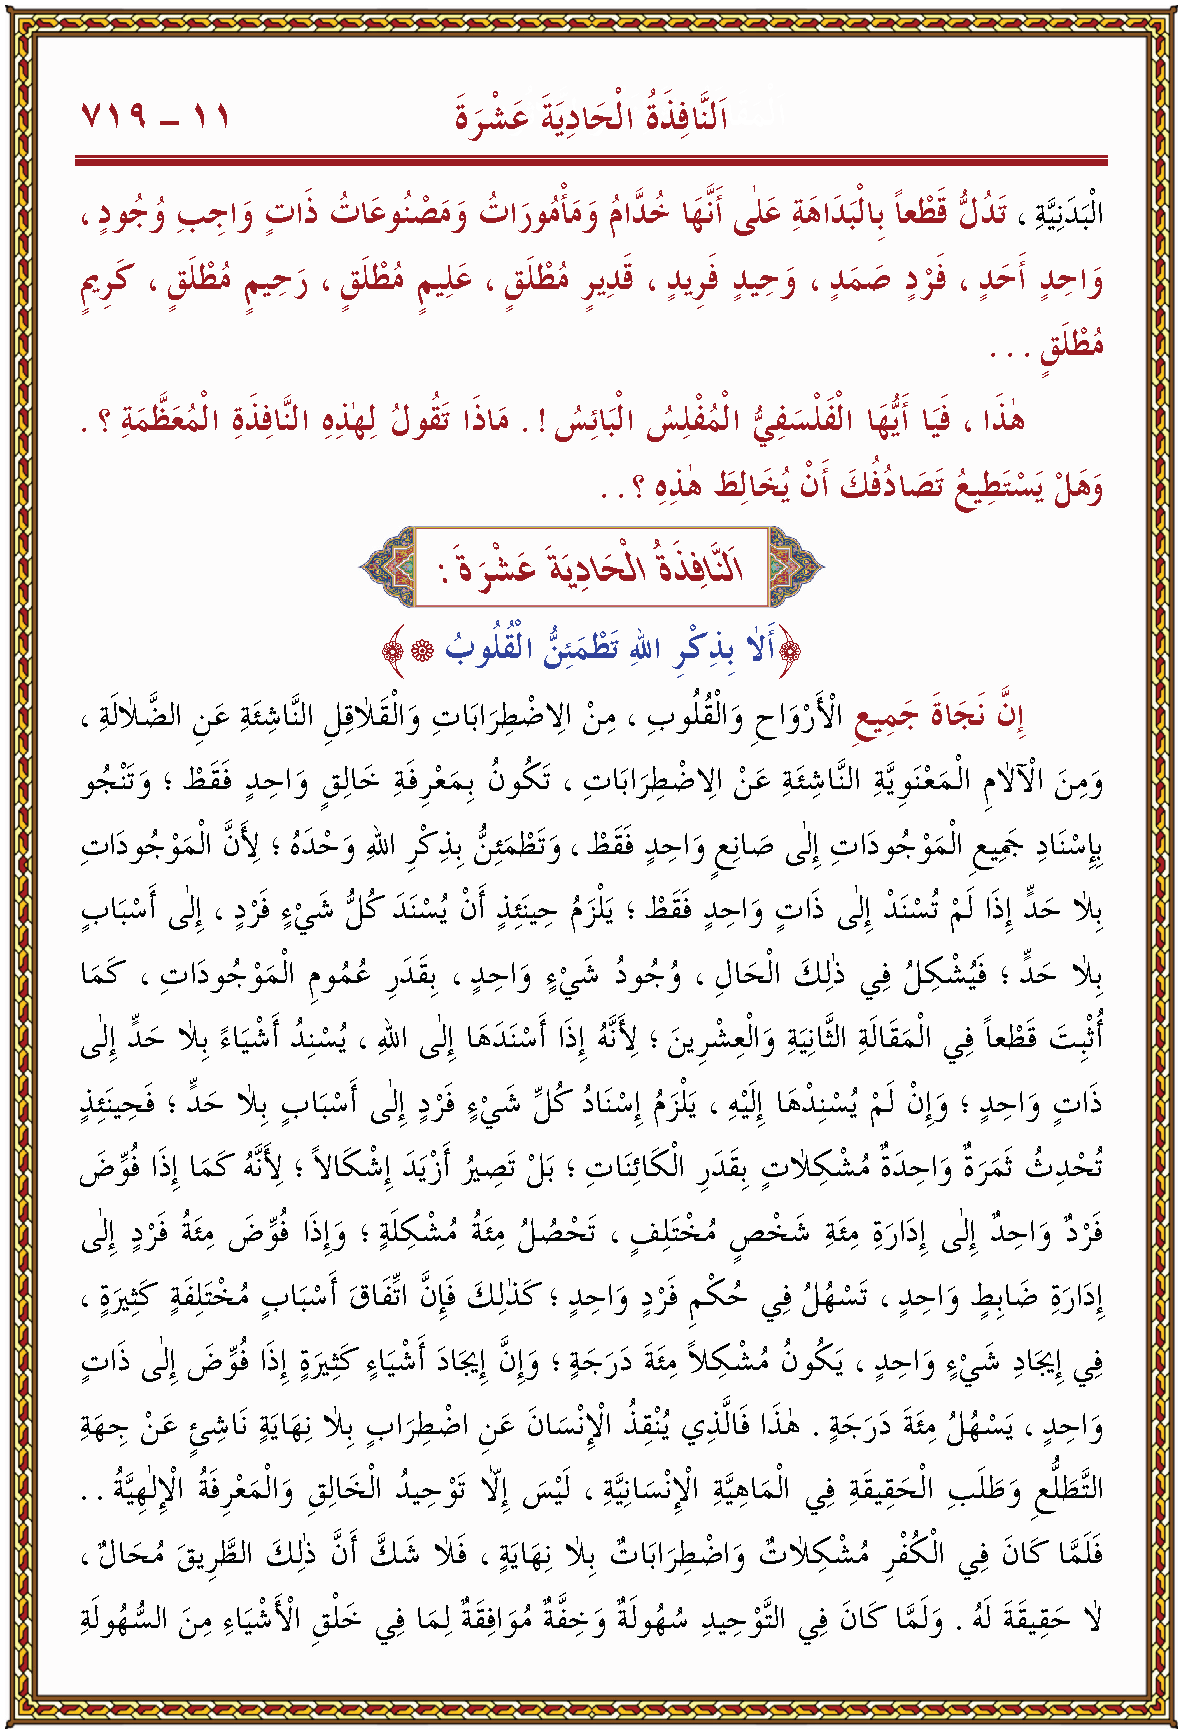 اَلنَّافِذَةُ الْحَادِيَةَ عَشْرَةَ ١١ – ٧١٩
الْبَدَنِيَّةِ ، تَدُلُّ قَطْعاً بِالْبَدَاهَةِ عَلٰى أَنَّهَا خُدَّامُ وَمَأْمُورَاتُ وَمَصْنُوعَاتُ ذَاتٍ وَاجِبِ وُجُودٍ ،
وَاحِدٍ أَحَدٍ ، فَرْدٍ صَمَدٍ ، وَحِيدٍ فَرِيدٍ ، قَدِيرٍ مُطْلَقٍ ، عَلِيمٍ مُطْلَقٍ ، رَحِيمٍ مُطْلَقٍ ، كَرِيمٍ
مُطْلَقٍ . . .
هٰذَا ، فَيَا أَيُّهَا الْفَلْسَفِيُّ الْمُفْلِسُ الْبَائِسُ ! . مَاذَا تَقُولُ لِهٰذِهِ النَّافِذَةِ الْمُعَظَّمَةِ ؟ .
وَهَلْ يَسْتَطِيعُ تَصَادُفُكَ أَنْ يُخَالِطَ هٰذِهِ ؟ . .
اَلنَّافِذَةُ الْحَادِيَةَ عَشْرَةَ :
﴿أَلَا بِذِكْرِ اللهِ تَطْمَئِنُّ الْقُلُوبُ ۞ ﴾
إِنَّ نَجَاةَ جَمِيعِ الْأَرْوَاحِ وَالْقُلُوبِ ، مِنْ الِاضْطِرَابَاتِ وَالْقَلَاقِلِ النَّاشِئَةِ عَنِ الضَّلَالَةِ ،
وَمِنَ الْآلَامِ الْمَعْنَوِيَّةِ النَّاشِئَةِ عَنْ الِاضْطِرَابَاتِ ، تَكُونُ بِمَعْرِفَةِ خَالِقٍ وَاحِدٍ فَقَطْ ؛ وَتَنْجُو
بِإِسْنَادِ جَمِيعِ الْمَوْجُودَاتِ إِلٰى صَانِعٍ وَاحِدٍ فَقَطْ ، وَتَطْمَئِنُّ بِذِكْرِ اللهِ وَحْدَهُ ؛ لِأَنَّ الْمَوْجُودَاتِ
بِلَا حَدٍّ إِذَا لَمْ تُسْنَدْ إِلٰى ذَاتٍ وَاحِدٍ فَقَطْ ؛ يَلْزَمُ حِينَئِذٍ أَنْ يُسْنَدَ كُلُّ شَيْءٍ فَرْدٍ ، إِلٰى أَسْبَابٍ
بِلَا حَدٍّ ؛ فَيُشْكِلُ فِي ذٰلِكَ الْحَالِ ، وُجُودُ شَيْءٍ وَاحِدٍ ، بِقَدَرِ عُمُومِ الْمَوْجُودَاتِ ، كَمَا
أُثْبِتَ قَطْعاً فِي الْمَقَالَةِ الثَّانِيَةِ وَالْعِشْرِينَ ؛ لِأَنَّهُ إِذَا أَسْنَدَهَا إِلٰى اللهِ ، يُسْنِدُ أَشْيَاءً بِلَا حَدٍّ إِلٰى
ذَاتٍ وَاحِدٍ ؛ وَإِنْ لَمْ يُسْنِدْهَا إِلَيْهِ ، يَلْزَمُ إِسْنَادُ كُلِّ شَيْءٍ فَرْدٍ إِلٰى أَسْبَابٍ بِلَا حَدٍّ ؛ فَحِينَئِذٍ
تُحْدِثُ ثَمَرَةٌ وَاحِدَةٌ مُشْكِلَاتٍ بِقَدَرِ الْكَائِنَاتِ ؛ بَلْ تَصِيرُ أَزْيَدَ إِشْكَالاً ؛ لِأَنَّهُ كَمَا إِذَا فُوِّضَ
فَرْدٌ وَاحِدٌ إِلٰى إِدَارَةِ مِئَةِ شَخْصٍ مُخْتَلِفٍ ، تَحْصُلُ مِئَةُ مُشْكِلَةٍ ؛ وَإِذَا فُوِّضَ مِئَةُ فَرْدٍ إِلٰى
إِدَارَةِ ضَابِطٍ وَاحِدٍ ، تَسْهُلُ فِي حُكْمِ فَرْدٍ وَاحِدٍ ؛ كَذٰلِكَ فَإِنَّ اتِّفَاقَ أَسْبَابٍ مُخْتَلِفَةٍ كَثِيرَةٍ ،
فِي إِيجَادِ شَيْءٍ وَاحِدٍ ، يَكُونُ مُشْكِلاً مِئَةَ دَرَجَةٍ ؛ وَإِنَّ إِيجَادَ أَشْيَاءٍ كَثِيرَةٍ إِذَا فُوِّضَ إِلٰى ذَاتٍ
وَاحِدٍ ، يَسْهُلُ مِئَةَ دَرَجَةٍ . هٰذَا فَالَّذِي يُنْقِذُ الْإِنْسَانَ عَنِ اضْطِرَابٍ بِلَا نِهَايَةٍ نَاشِئٍ عَنْ جِهَةِ
التَّطَلُّعِ وَطَلَبِ الْحَقِيقَةِ فِي الْمَاهِيَّةِ الْإِنْسَانِيَّةِ ، لَيْسَ إِلَّا تَوْحِيدُ الْخَالِقِ وَالْمَعْرِفَةُ الْإِلٰهِيَّةُ . .
فَلَمَّا كَانَ فِي الْكُفْرِ مُشْكِلَاتٌ وَاضْطِرَابَاتٌ بِلَا نِهَايَةٍ ، فَلَا شَكَّ أَنَّ ذٰلِكَ الطَّرِيقَ مُحَالٌ ،
لَا حَقِيقَةَ لَهُ . وَلَمَّا كَانَ فِي التَّوْحِيدِ سُهُولَةٌ وَخِفَّةٌ مُوَافِقَةٌ لِمَا فِي خَلْقِ الْأَشْيَاءِ مِنَ السُّهُولَةِ